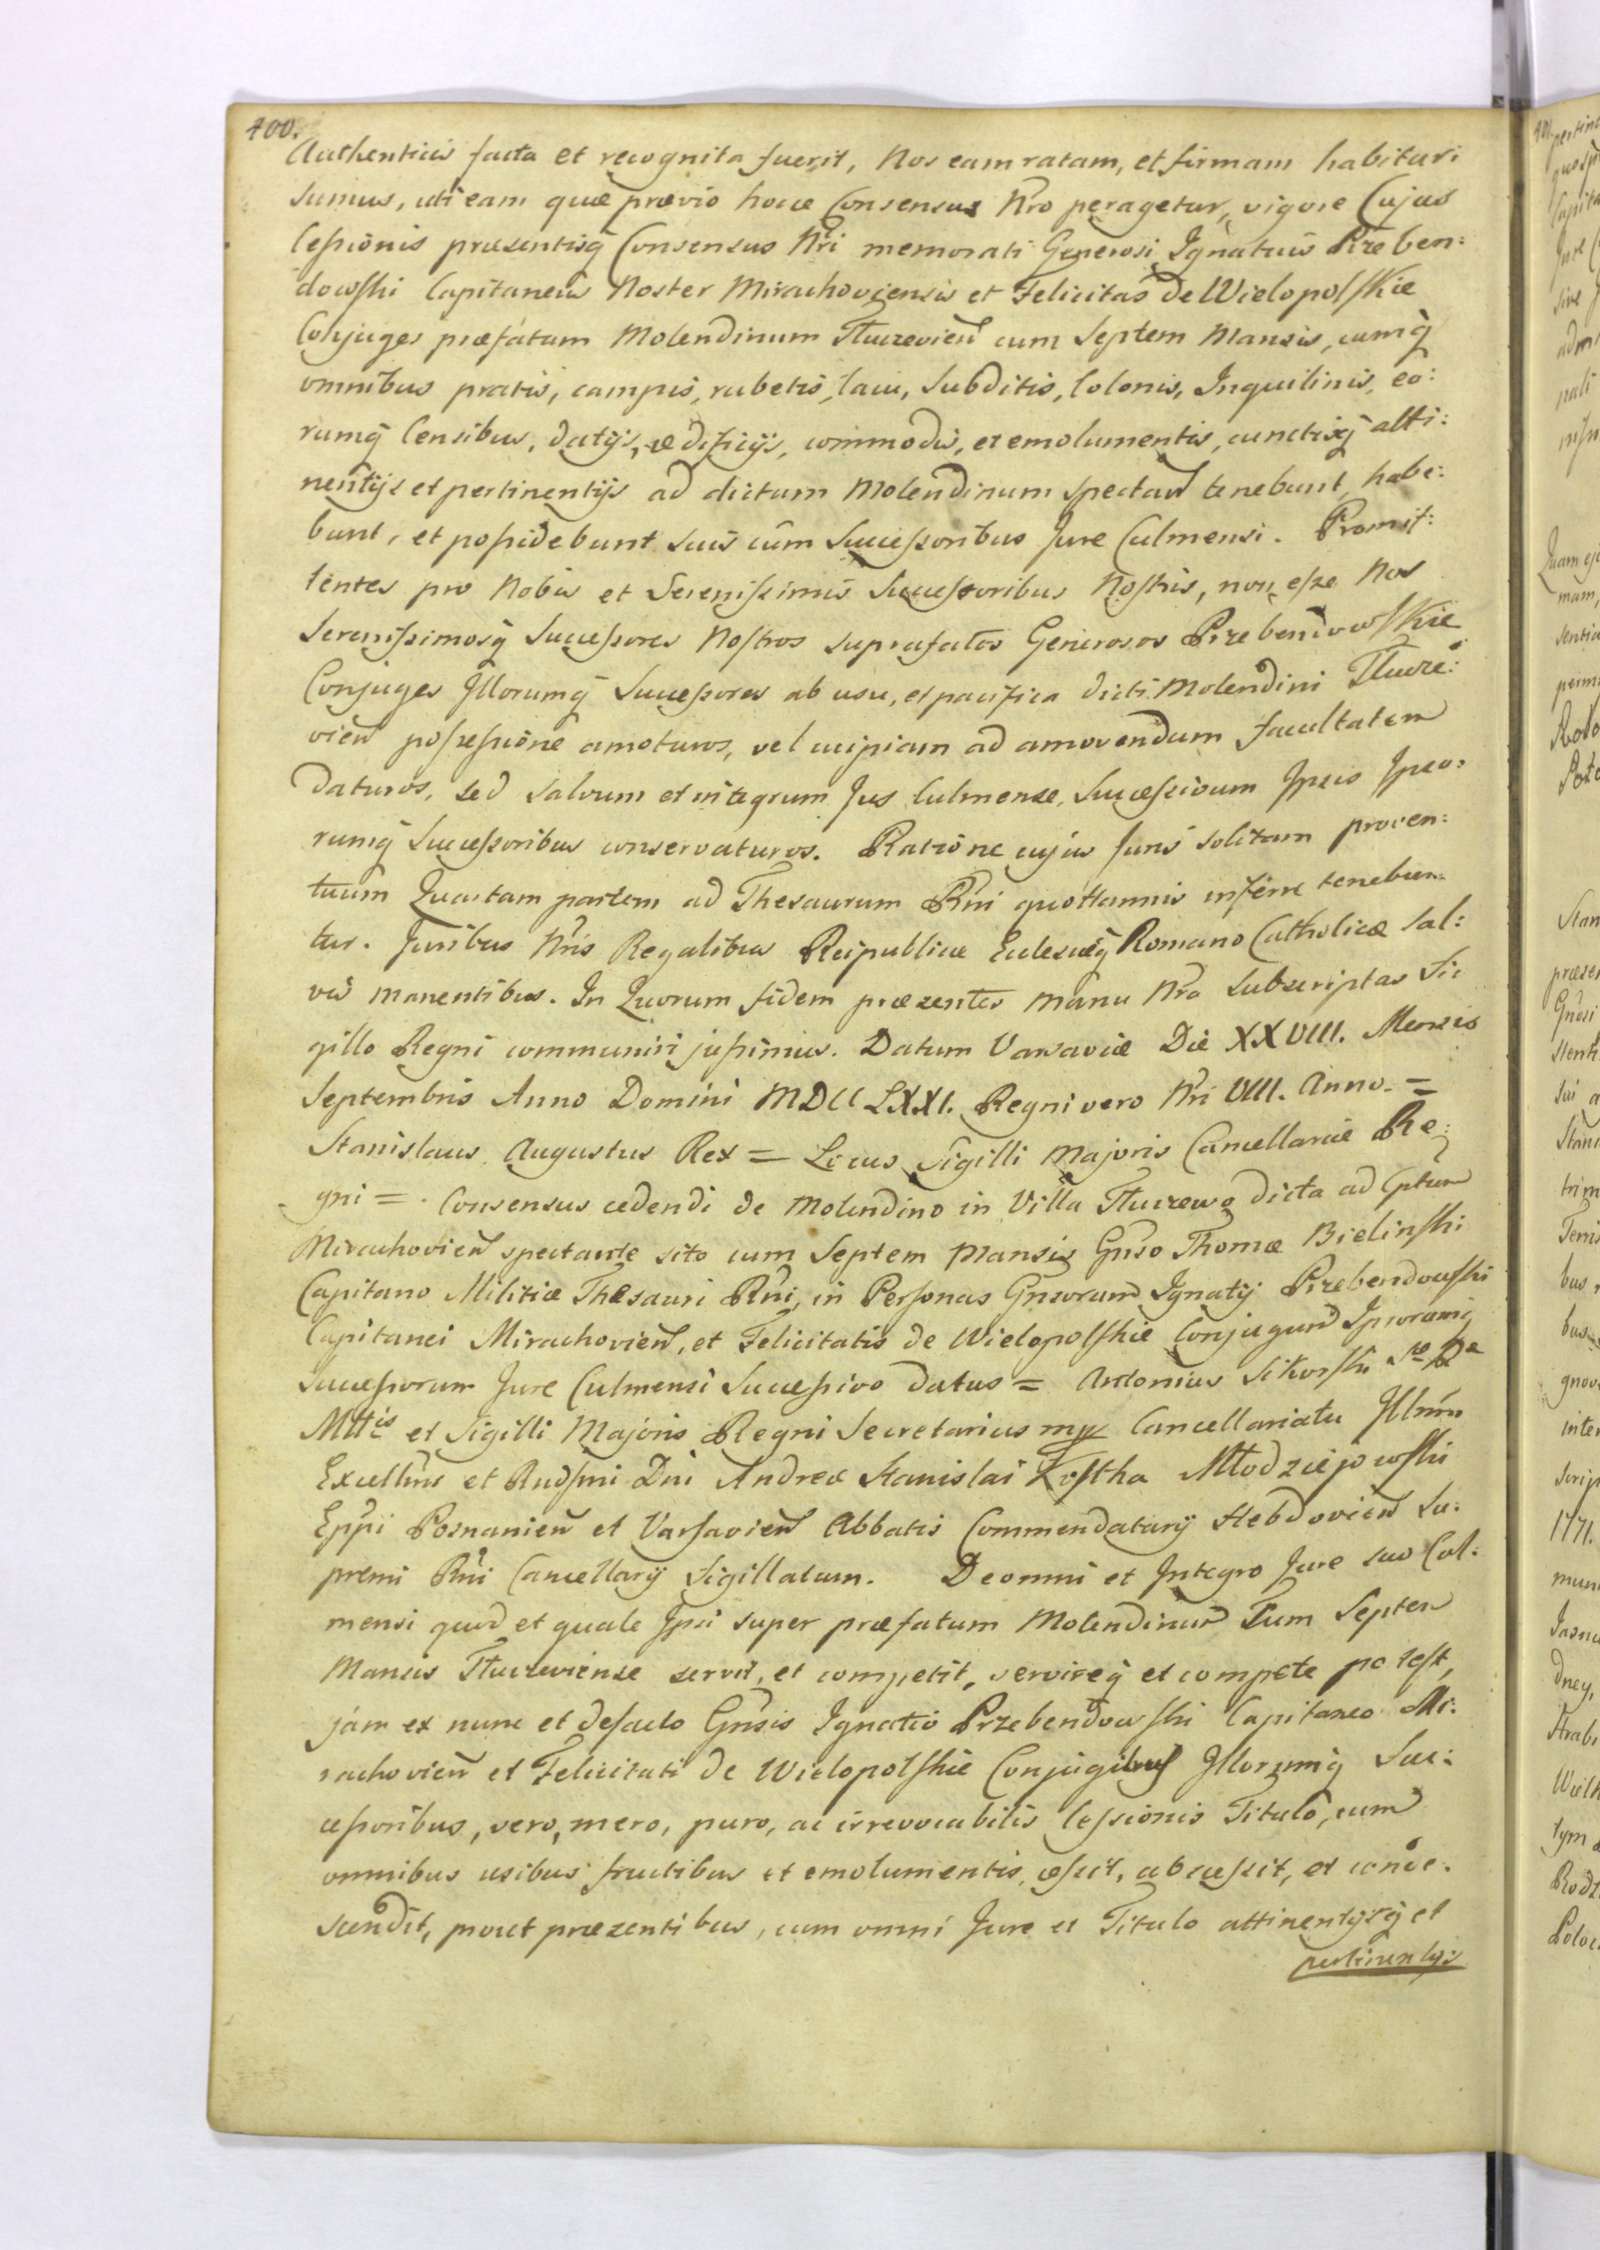 400.
Authenticis facta et recognita fuerit, Nos eam ratam, et firmam habituri
sumus, uti eam quæ prævio hocce Consensu Nro peragetur, vigore Cujus
Cessionis præsentisq̃ Consensus Nri memorati Generosi Ignatius Przeben:
dowski Capitaneus Noster Mirachoviensis et Felicitas de Wielopolskie
Conjuges præfatum Molendinum Tłuczevien̄ cum Septem Mansis, cumq̃
omnibus pratis, campis, rubetis, lacu, Subditis, Colonis, Inquilinis, eo:
rumq̃ Censibus, datijs, ædificijs, commodis, et emolumentis, cunctisq̃ atti:
nentijs et pertinentijs ad dictum Molendinum spectan̄ tenebunt, habe:
bunt, et possidebunt suis cum Successoribus Jure Culmensi. Promit:
tentes pro Nobis et Serenissimis Successoribus Nostris, non esse Nos
Serenissimosq̃ Successores Nostros suprafatos Generosos Przebendowskie
Conjuges Illorumq̃ Successores ab usu, et pacifica dicti Molendini Tłucze:
vien̄ possessione amoturos, vel cuipiam ad amovendum facultatem
daturos, sed salvum et integrum Jus Culmense, Successivum Ipsis Ipso:
rumq̃ Successoribus conservaturos. Ratione cujus Juris solitam proven:
tuum Quartam partem ad Thesaurum Rni quottannis inferre tenebun:
tur. Juribus Nris Regalibus Reipublicæ Eclesiæq̃ Romano Catholicæ sal:
vis manentibus. In Quorum fidem præsentes manu Nra subscriptas Si:
gillo Regni communiri jussimus. Datum Varsaviæ Die XXVIII. Mensis
Septembris Anno Domini MDCCLXXI. Regni vero Nri VIII. Anno. =
Stanislaus Augustus Rex = Locus Sigilli Majoris Cancellariæ Re:
gni = . Consensus cedendi de Molendino in Villa Tłuczewo dicta ad Cptum
Mirachovien̄ spectante sito cum Septem Mansis Gnso Thomæ Bielinski
Capitano Militiæ Thesauri Rni, in Personas Gnsorum Ignatij Przebendowski
Capitanei Mirachovien̄, et Felicitatis de Wielopolskie Conjugum Ipsorumq̃
Successorum Jure Culmensi Successivo datus = Antonius Sikorski Sæ Ræ
Mttis et Sigilli Majoris Regni Secretarius mp Cancellariatu Illmi
Excellmi et Rndsmi Dni Andreæ Stanislai Kostka Młodziejowski
Eppi Posnanien̄ et Varsavien̄ Abbatis Commendatarij Hebdovien̄ Su:
premi Rni Cancellarij Sigillatum. De omni et Integro Jure suo Cul:
mensi quod et quale Ipsi super præfatum Molendinum Cum Septem
Mansis Tłuczeviense servit, et competit, servireq̃ et compete potest,
jam ex nunc et defacto Gnsis Ignatio Przebendowski Capitaneo Mi:
rachovien̄ et Felicitati de Wielopolskie Conjugibus Illorumq̃ Suc:
cessoribus, vero, mero, puro, ac irrevocabilis Cessionis Titulo, cum
omnibus usibus fructibus et emolumentis, cessit, abscessit, et conde:
scendit, prout præsentibus, cum omni Jure et Titulo attinentijsq̃ et
pertinentijs